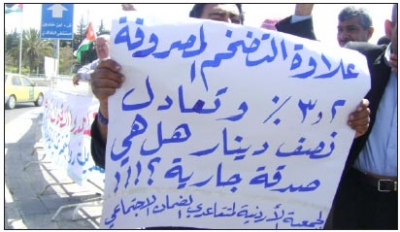 علاوة التضخم المصروفة
٣٫٢ ٪ وتعادل
نصف دينار هل هي
صدقة جارية ؟!!!
الجمعية الأردنية لمتقاعدي الضمان الاجتماعي